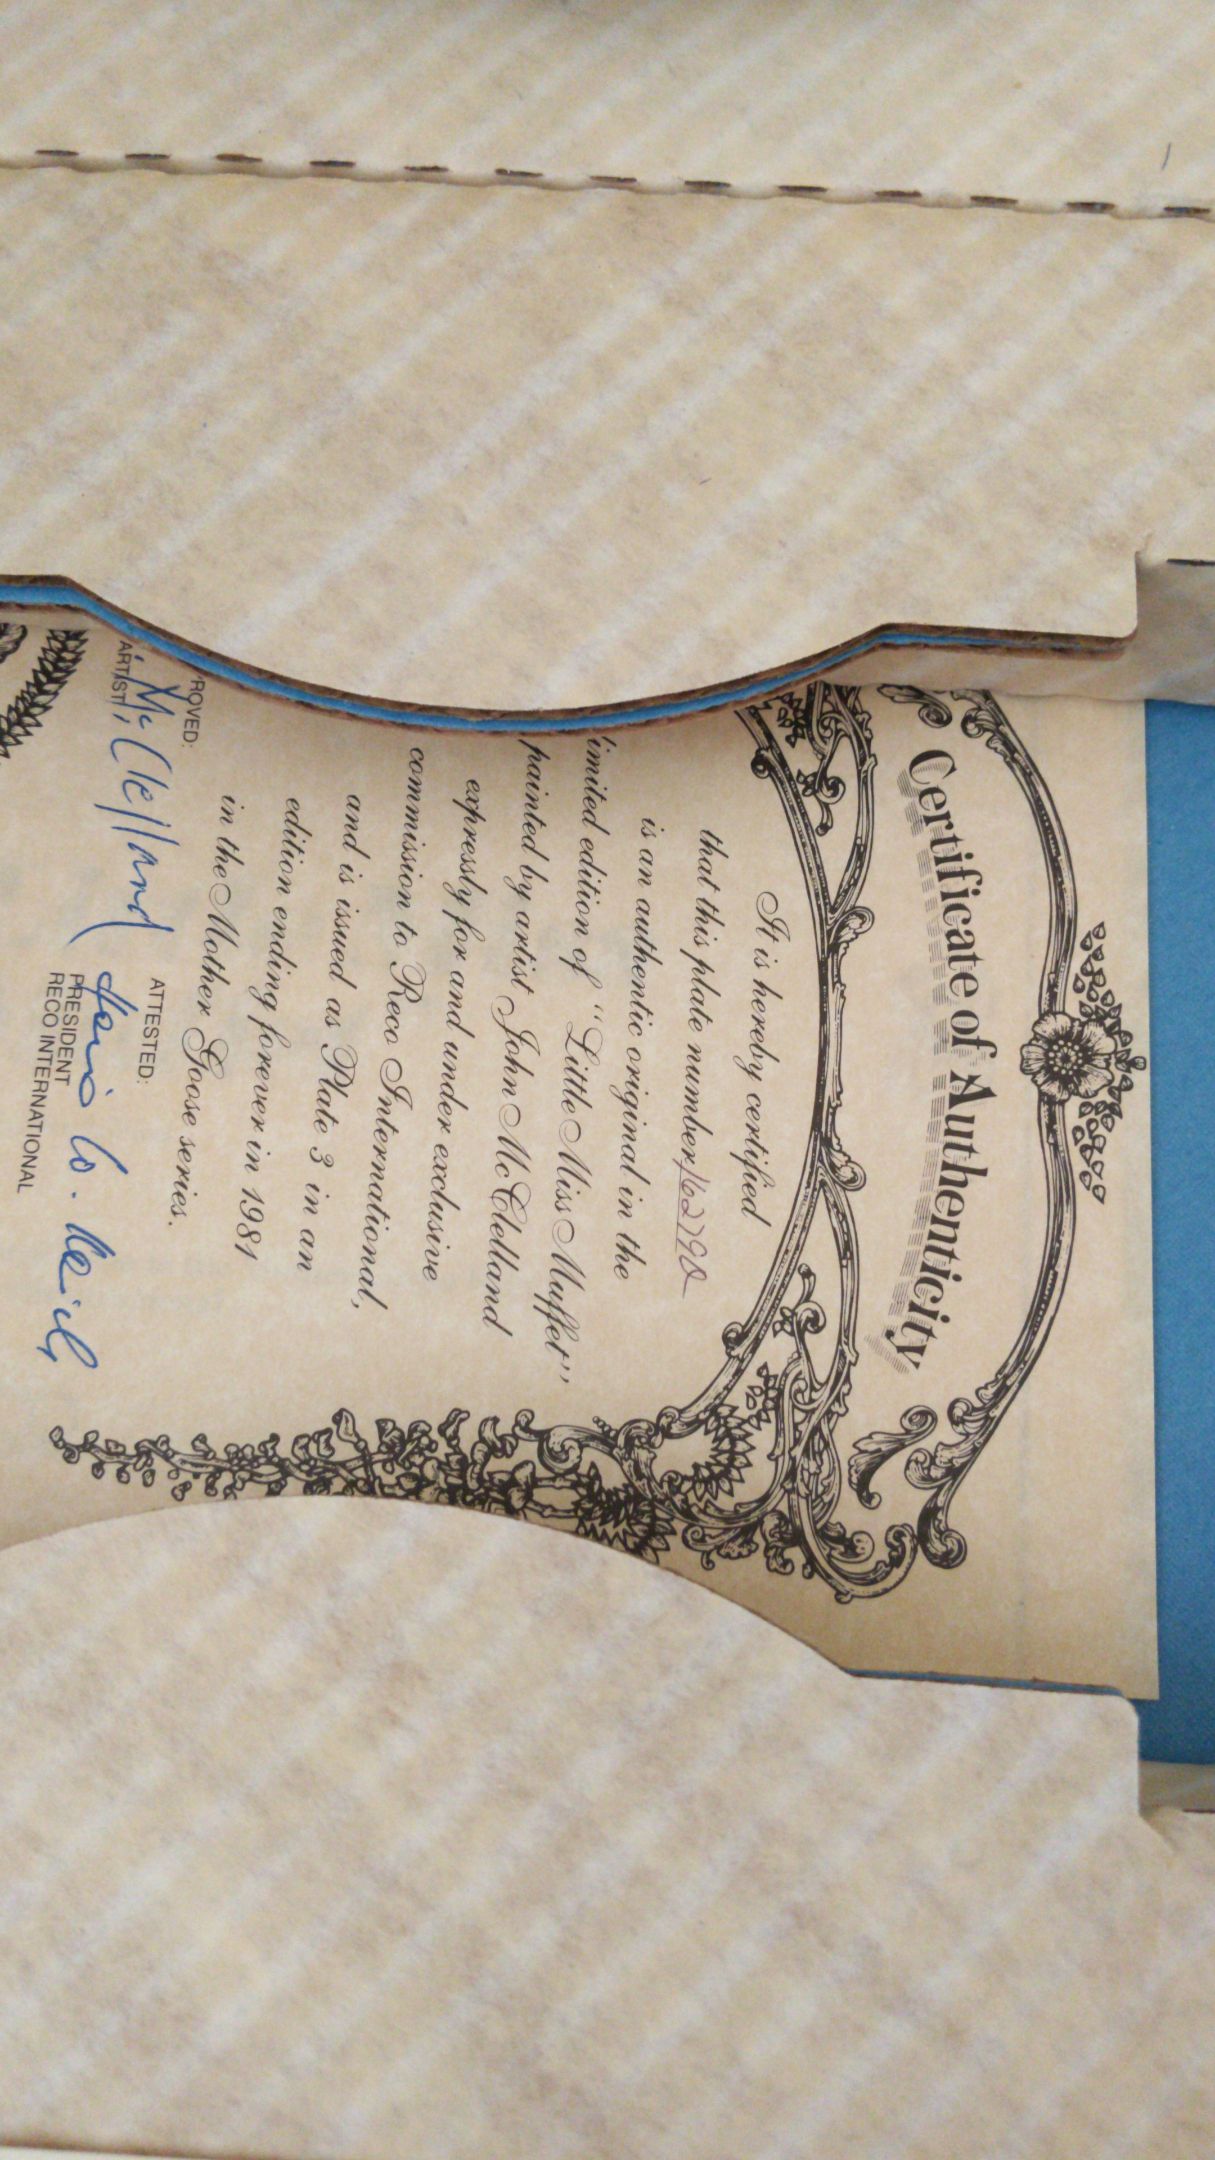 Certificate of Authenticity
It is hereby certified
that this plate number
is an authentic original in the
limited edition of "Little Miss Muffet",
painted by artist John McClelland
expressly for and under exclusive
commission to Reco International,
and is issued as Plate 3 in an
edition ending forever in 1981
in the Mother Goose series.
ROVED:
McClelland
ARTIST
ATTESTED:
PRESIDENT
RECO INTERNATIONAL